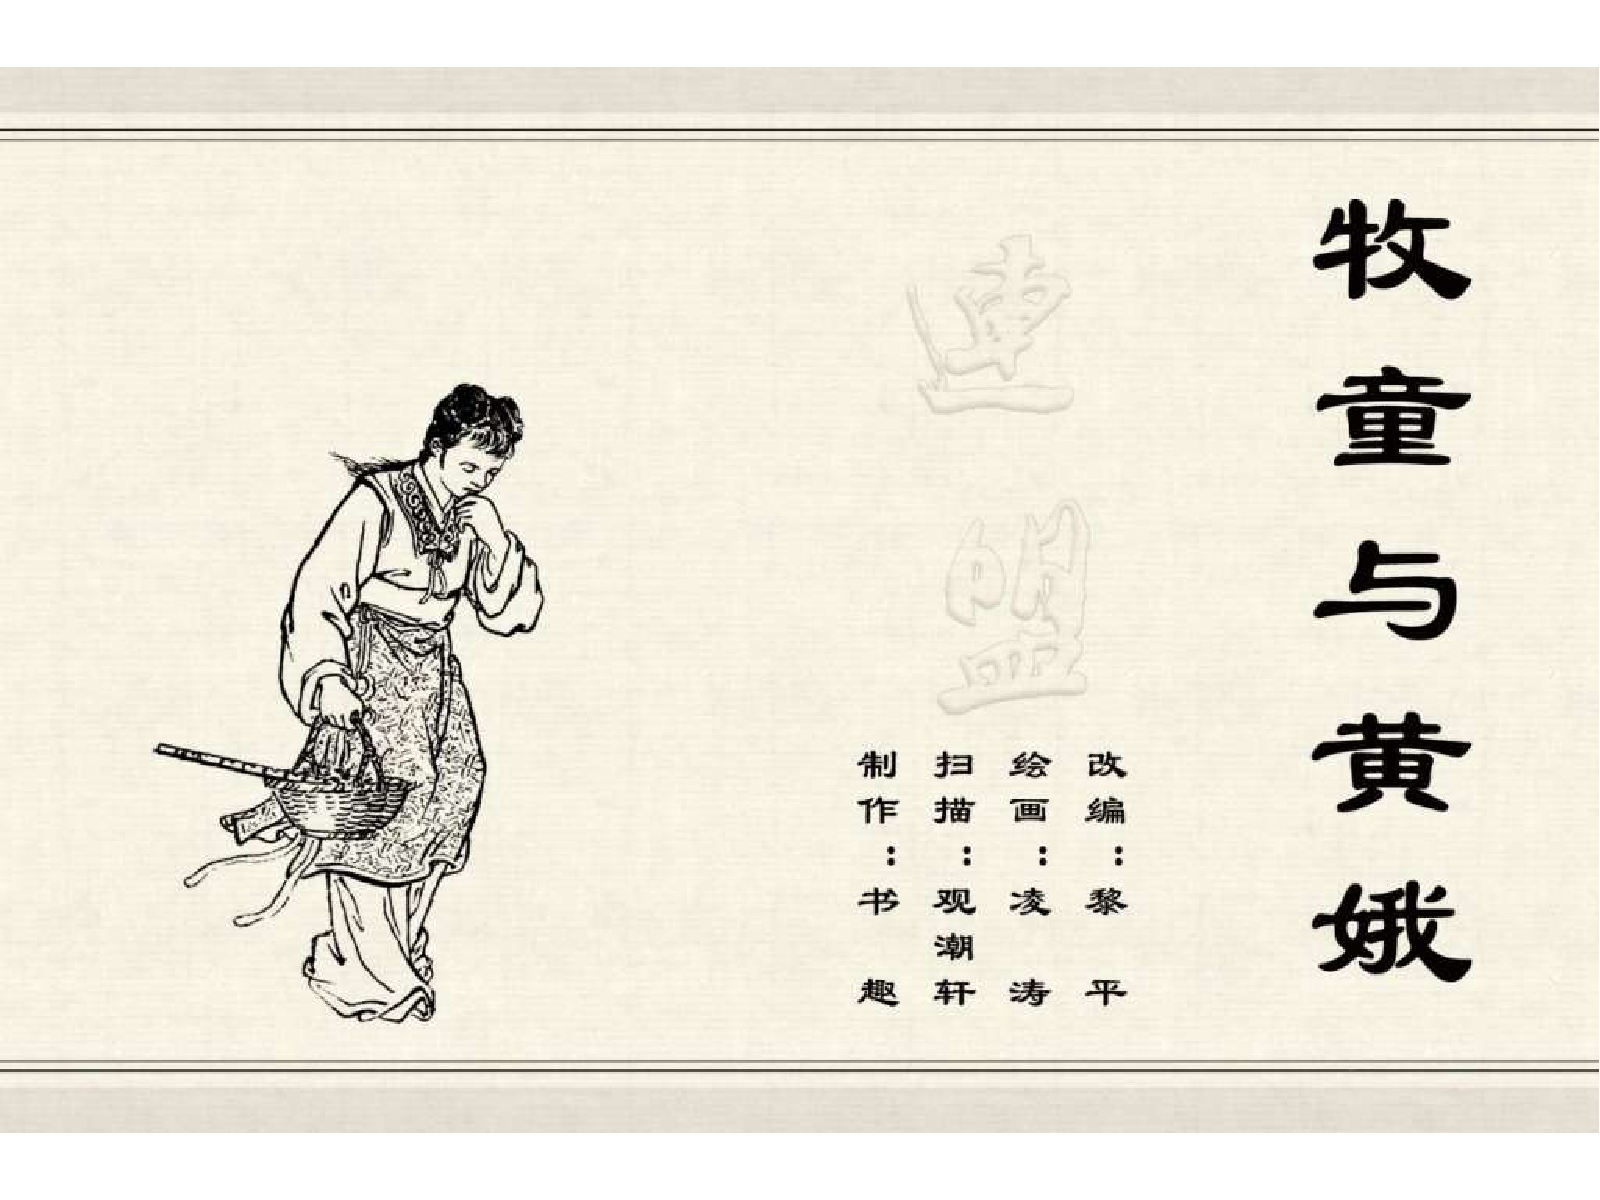 牧童与黄娥
改编：黎平
绘画：凌涛
扫描：观潮轩
制作：书趣
连盟